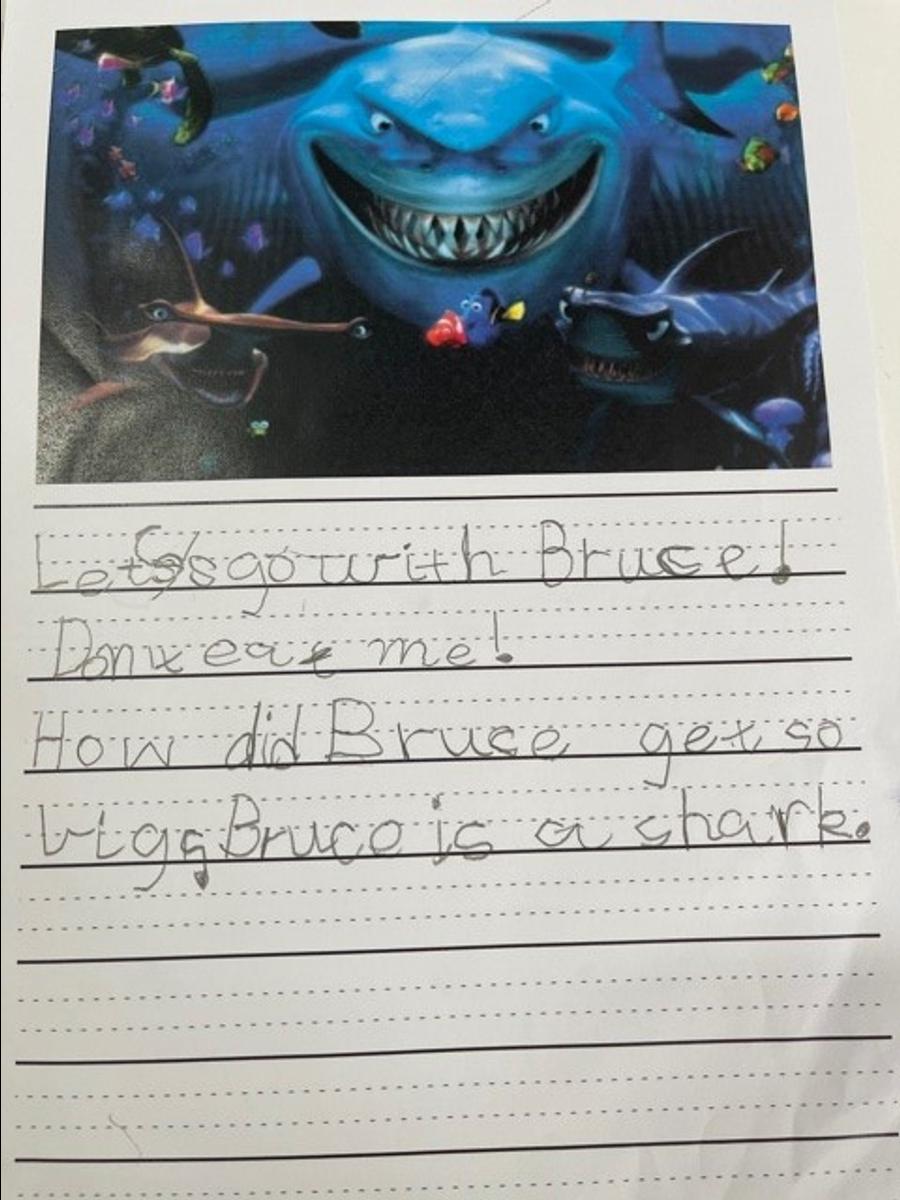 Let's go with Bruce!
Dont eat me!
How did Bruce get so
big? Bruce is a shark.